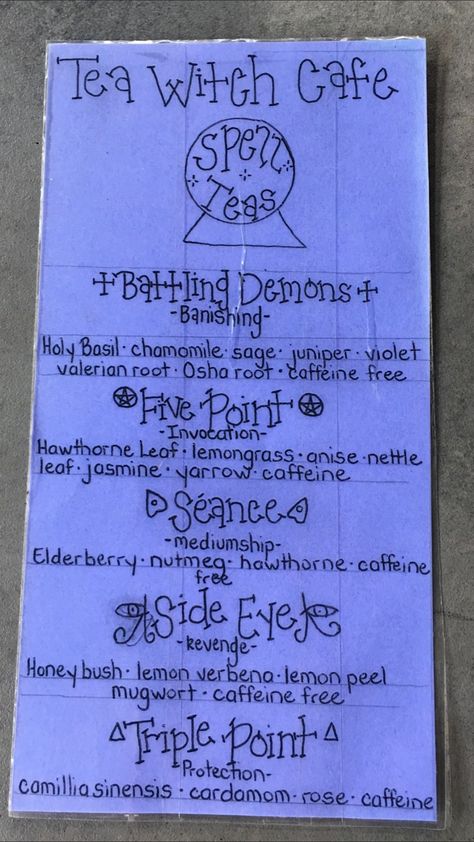 Tea Witch Cafe
Spell
Teas
Battling Demons
-Banishing-
Holy Basil · chamomile · sage · juniper · violet
valerian root · Osha root · caffeine free
Five Point
-Invocation-
Hawthorne Leaf · lemongrass · anise · nettle
leaf · jasmine · yarrow · caffeine
Séance
-mediumship-
Elderberry · nutmeg · hawthorne · caffeine
free
Side Eye
-Revenge-
Honey bush · lemon verbena · lemon peel
mugwort · caffeine free
Triple Point
Protection-
camillia sinensis · cardamom · rose · caffeine